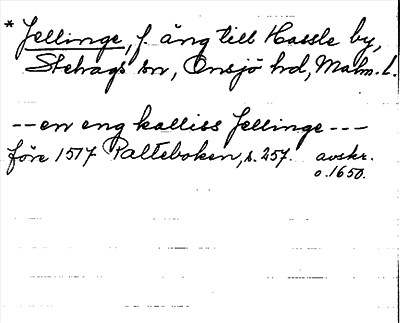 * Jellinge, f. äng till Hassle by,
Stehags sn, Onsjö hd, Malm. l.
-- en eng kalliss Jellinge ---
före 1517 Palteboken, s. 257. avskr.
o. 1650.